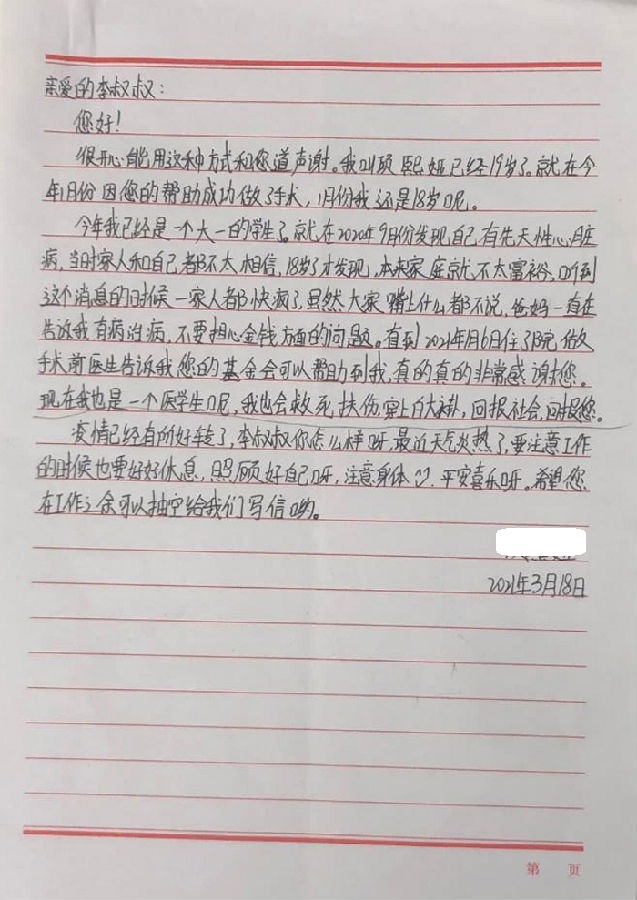 亲爱的李叔叔：
您好！
很开心能用这种方式和您道声谢。我叫顾熙姬已经19岁了。就在今
年1月份因您的帮助成功做了手术，1月份我还是18岁呢。
今年我已经是一个大一的学生了。就在2020年9月份发现自己有先天性心脏
病，当时家人和自己都不太相信，18岁了才发现，本来家庭就不太富裕，听到
这个消息的时候一家人都快疯了，虽然大家嘴上什么都不说，爸妈一直在
告诉我有病治病，不要担心金钱方面的问题。直到2021年1月6日住了院做
手术前医生告诉我您的基金会可以帮助到我，真的真的非常感谢您。
现在我也是一个医学生呢，我也会救死扶伤穿上白大褂，回报社会，回报您。
疫情已经有所好转了，李叔叔你怎么样呀，最近天气炎热了，要注意工作
的时候也要好好休息，照顾好自己呀，注意身体，平安喜乐呀。希望您
在工作之余可以抽空给我们写信哟。
2021年3月18日
第 页